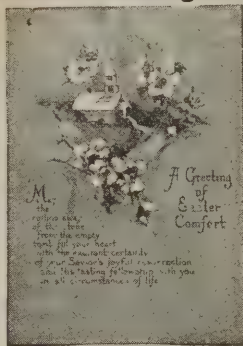 A Greeting
of
Easter
Comfort
May
the
rolling away
of the stone
from the empty
tomb fill your heart
with the radiant certainty
of your Savior's joyful resurrection
and His lasting fellowship with you
in all circumstances of life